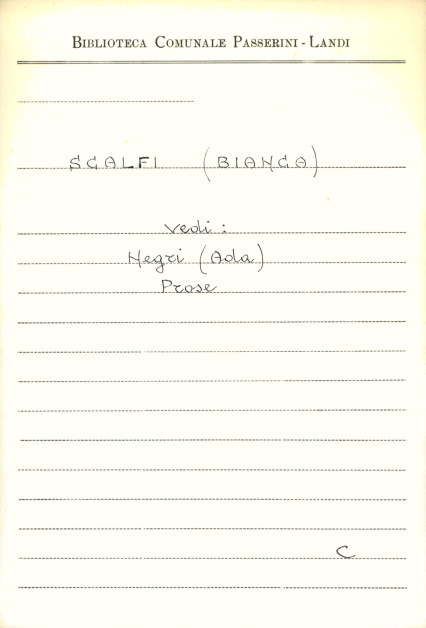 BIBLIOTECA COMUNALE PASSERINI - LANDI
SCALFI (BIANCA)
Vedi:
Negri (Ada)
Prose
C